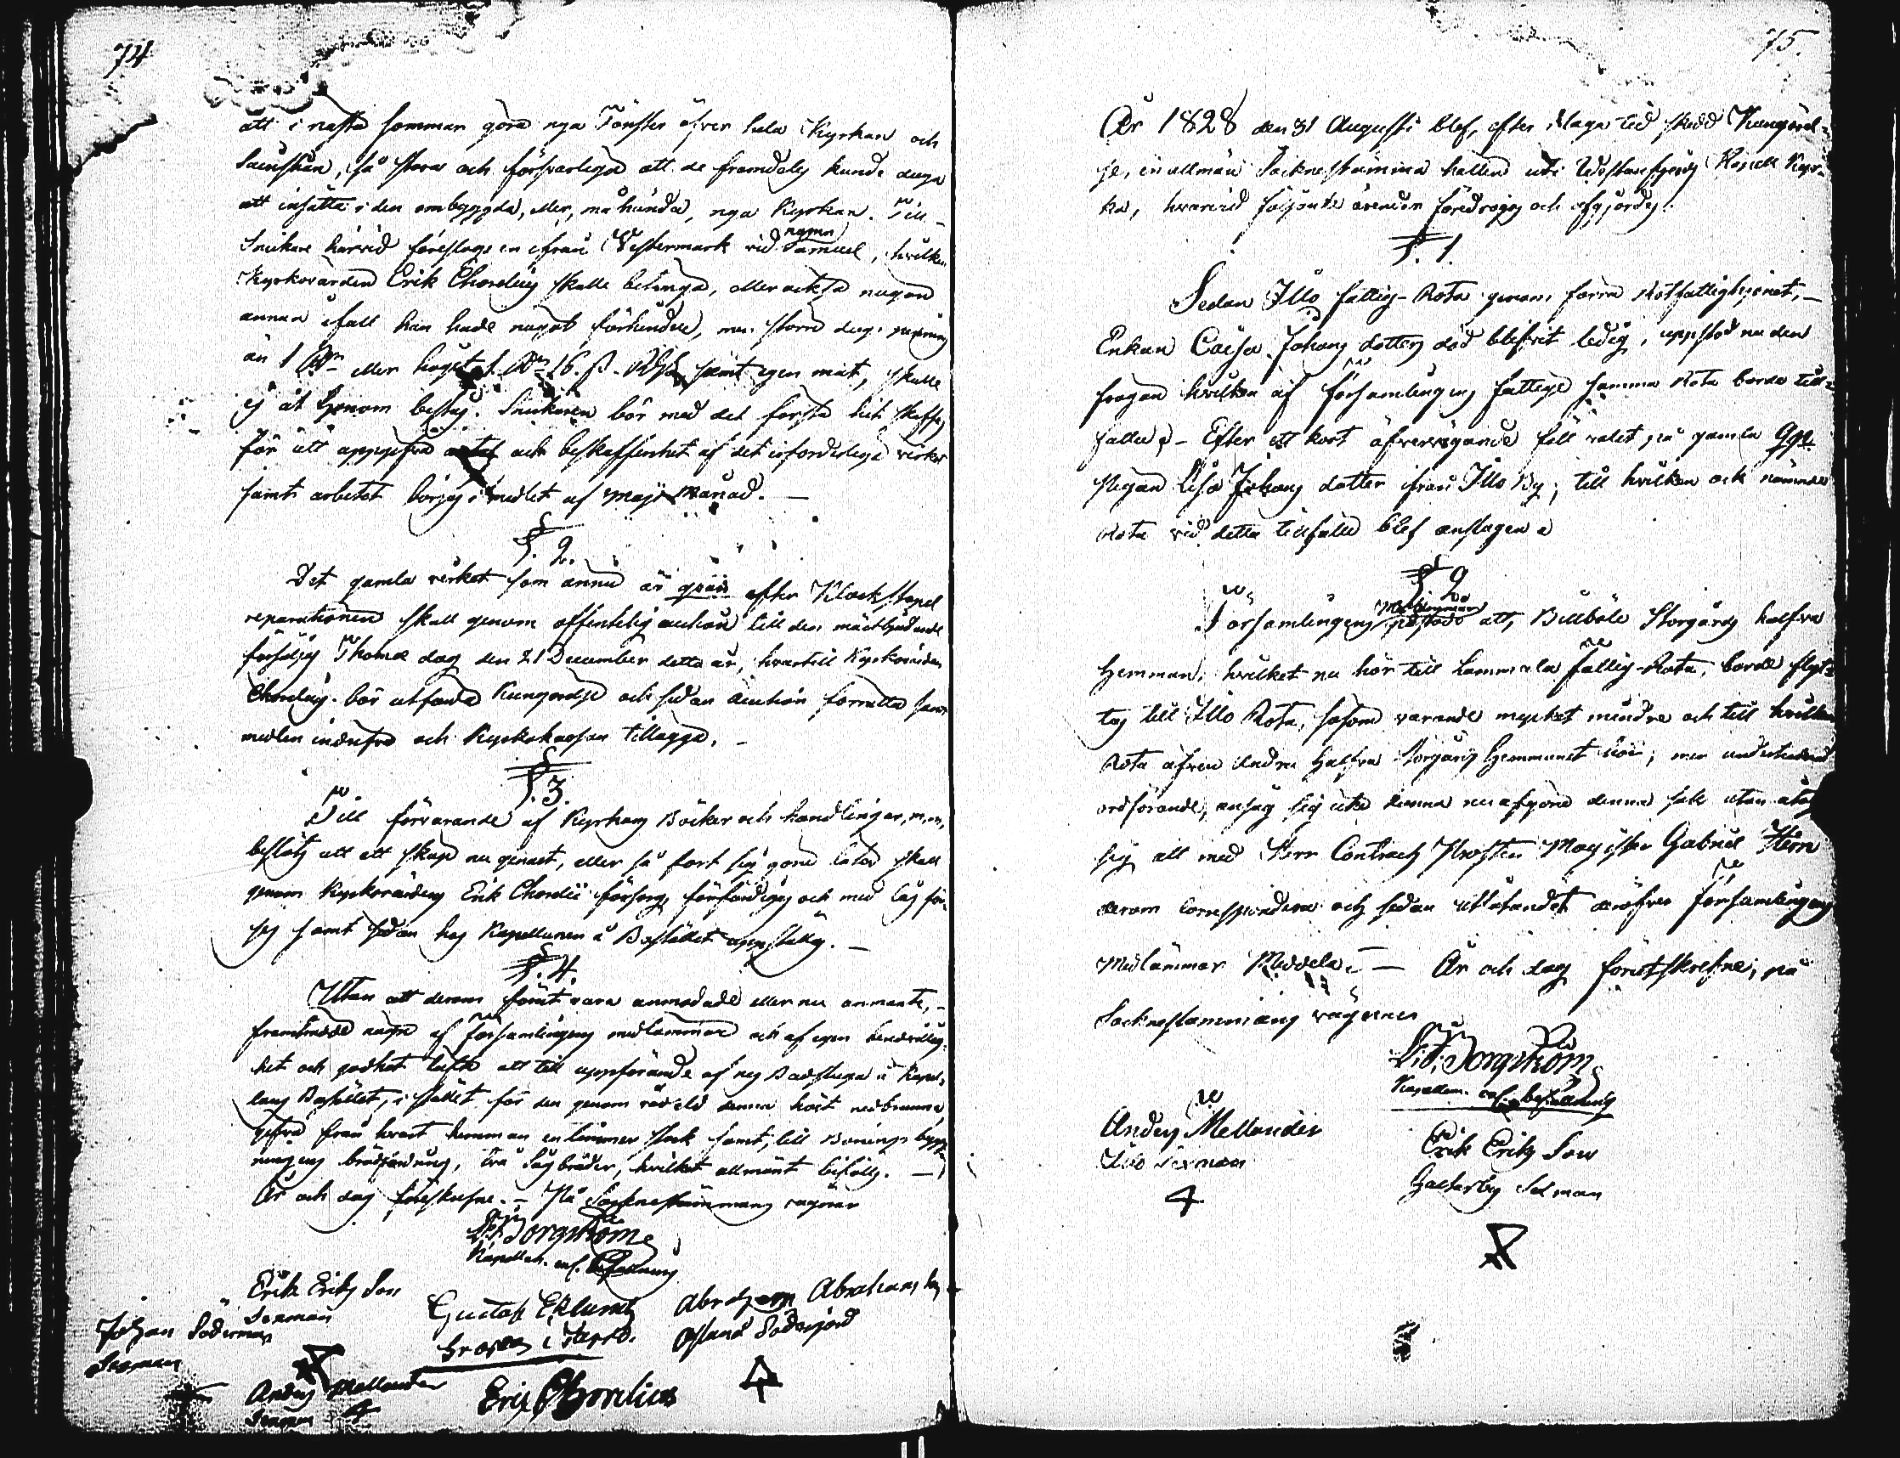 74
att i nästa sommar göra nya Fönster öfver hela Kyrkan och
Sacristian, så stora och försvarliga att de framdeles kunde duga
att insätta i den ombyggda, eller, må hända, nya Kyrkan. Till
Snickare härvid föreslogs en ifrån Westermark vid namn Samuel, hvilken
Kyrkovärden Erik Chorelius skulle betinga, eller ock så någon
annan ifall han hade något förhinder, men större dags
än 1 eller högst 1 16 samt egen mat, skulle
ej åt honom bestås. Snickaren bör med det första hit skaffas
för att uppgifva antal och beskaffenhet af det erforderliga virket
samt arbetet börjas i medlet af Maji Månad. —
§. 2.
Det gamla virket som ännu är qvar efter Klockstapel
reparationen skall genom offentelig auction till den mästbjudande
försäljas Thomæ dag den 21 December detta år, hvartill Kyrkovärden
Chorelius bör utfärda Kungörelse och sedan auction förrätta samt
medlen indrifva och Kyrkokassan tillägga. —
§. 3.
Till förvarande af Kyrkans Böcker och handlingar, m.m.
beslöts att ett skåp nu genast, eller så fort sig göra låter skall
genom Kyrkovärdens Erik Chorelii försorg förfärdigas och med lås för-
ses samt sedan hos Kapellanen å Bostället uppställas. —
§. 4.
Utan att derom förut vara anmodade eller nu anmante, —
framtredde någre af församlingens medlemmar och af egen benvällig-
het och godhet läfte att till uppförande af ny Badstuga å Kapel-
lans Bostället, i stället för den genom våd eld denna höst nedbrunna
gifva från hvart hemman en timmer stock samt, till Bonings bygg-
ningens brädfodring, två Sågbräder, hvilket allmänt bifölls. —
År och dag föreskrefne. — På Socknestämmans vägnar
Borgström
Kapellan
Erik Ericks Son
Sexman
Johan Söderman
Sexman
Gustaf Eklund
Abraham Abrahams
Anders Mellander
Sexman
Eric Chorelius
75.
År 1828 den 31 Augusti blef, efter i laga tid skedd Kungörel-
se, en allmän Sockne stämma hållen uti Kapell Kyr-
ka, hvarvid följande ärender föredrogos och afgjordes:
§. 1.
Sedan Illo fattig-Rota genom förra Rotfattighjonet, —
Enkan Caisa Johans dotters död blifvit ledig, uppstod nu den
frågan hvilken af församlingens fattige samma Rota borde till-
falla? — Efter ett kort öfvervägande föll valet på gamla
pigan Lisa Johans dotter ifrån Illo By, till hvilken ock nämnde
Rota vid detta tillfälle blef anslagen
§ 2
Församlingens Medlemmar påstodo att, Billböle Storgårds halfva
Hemman, hvilket nu hör till hammala fattig-Rota, borde flyt-
tas till Illo Rota, såsom varande mycket mindre och till hvilken
Rota äfven andra halfva Storgårds hemmanet hör; men undertecknad
ordförande, ansåg sig icke kunna nu afgöra denna sak utan
sig att med Herr Contracts Prosten Magister Gabriel Hirn
derom correspondera och sedan utlåtandet deröfver församlingens
Medlämmar Meddela. — År och dag förutskrefne, på
Socknestämmans vägnar
Borgström
Kapellan
Anders Mellander
Illo sexman
4
Erik Ericks Son
Sexman